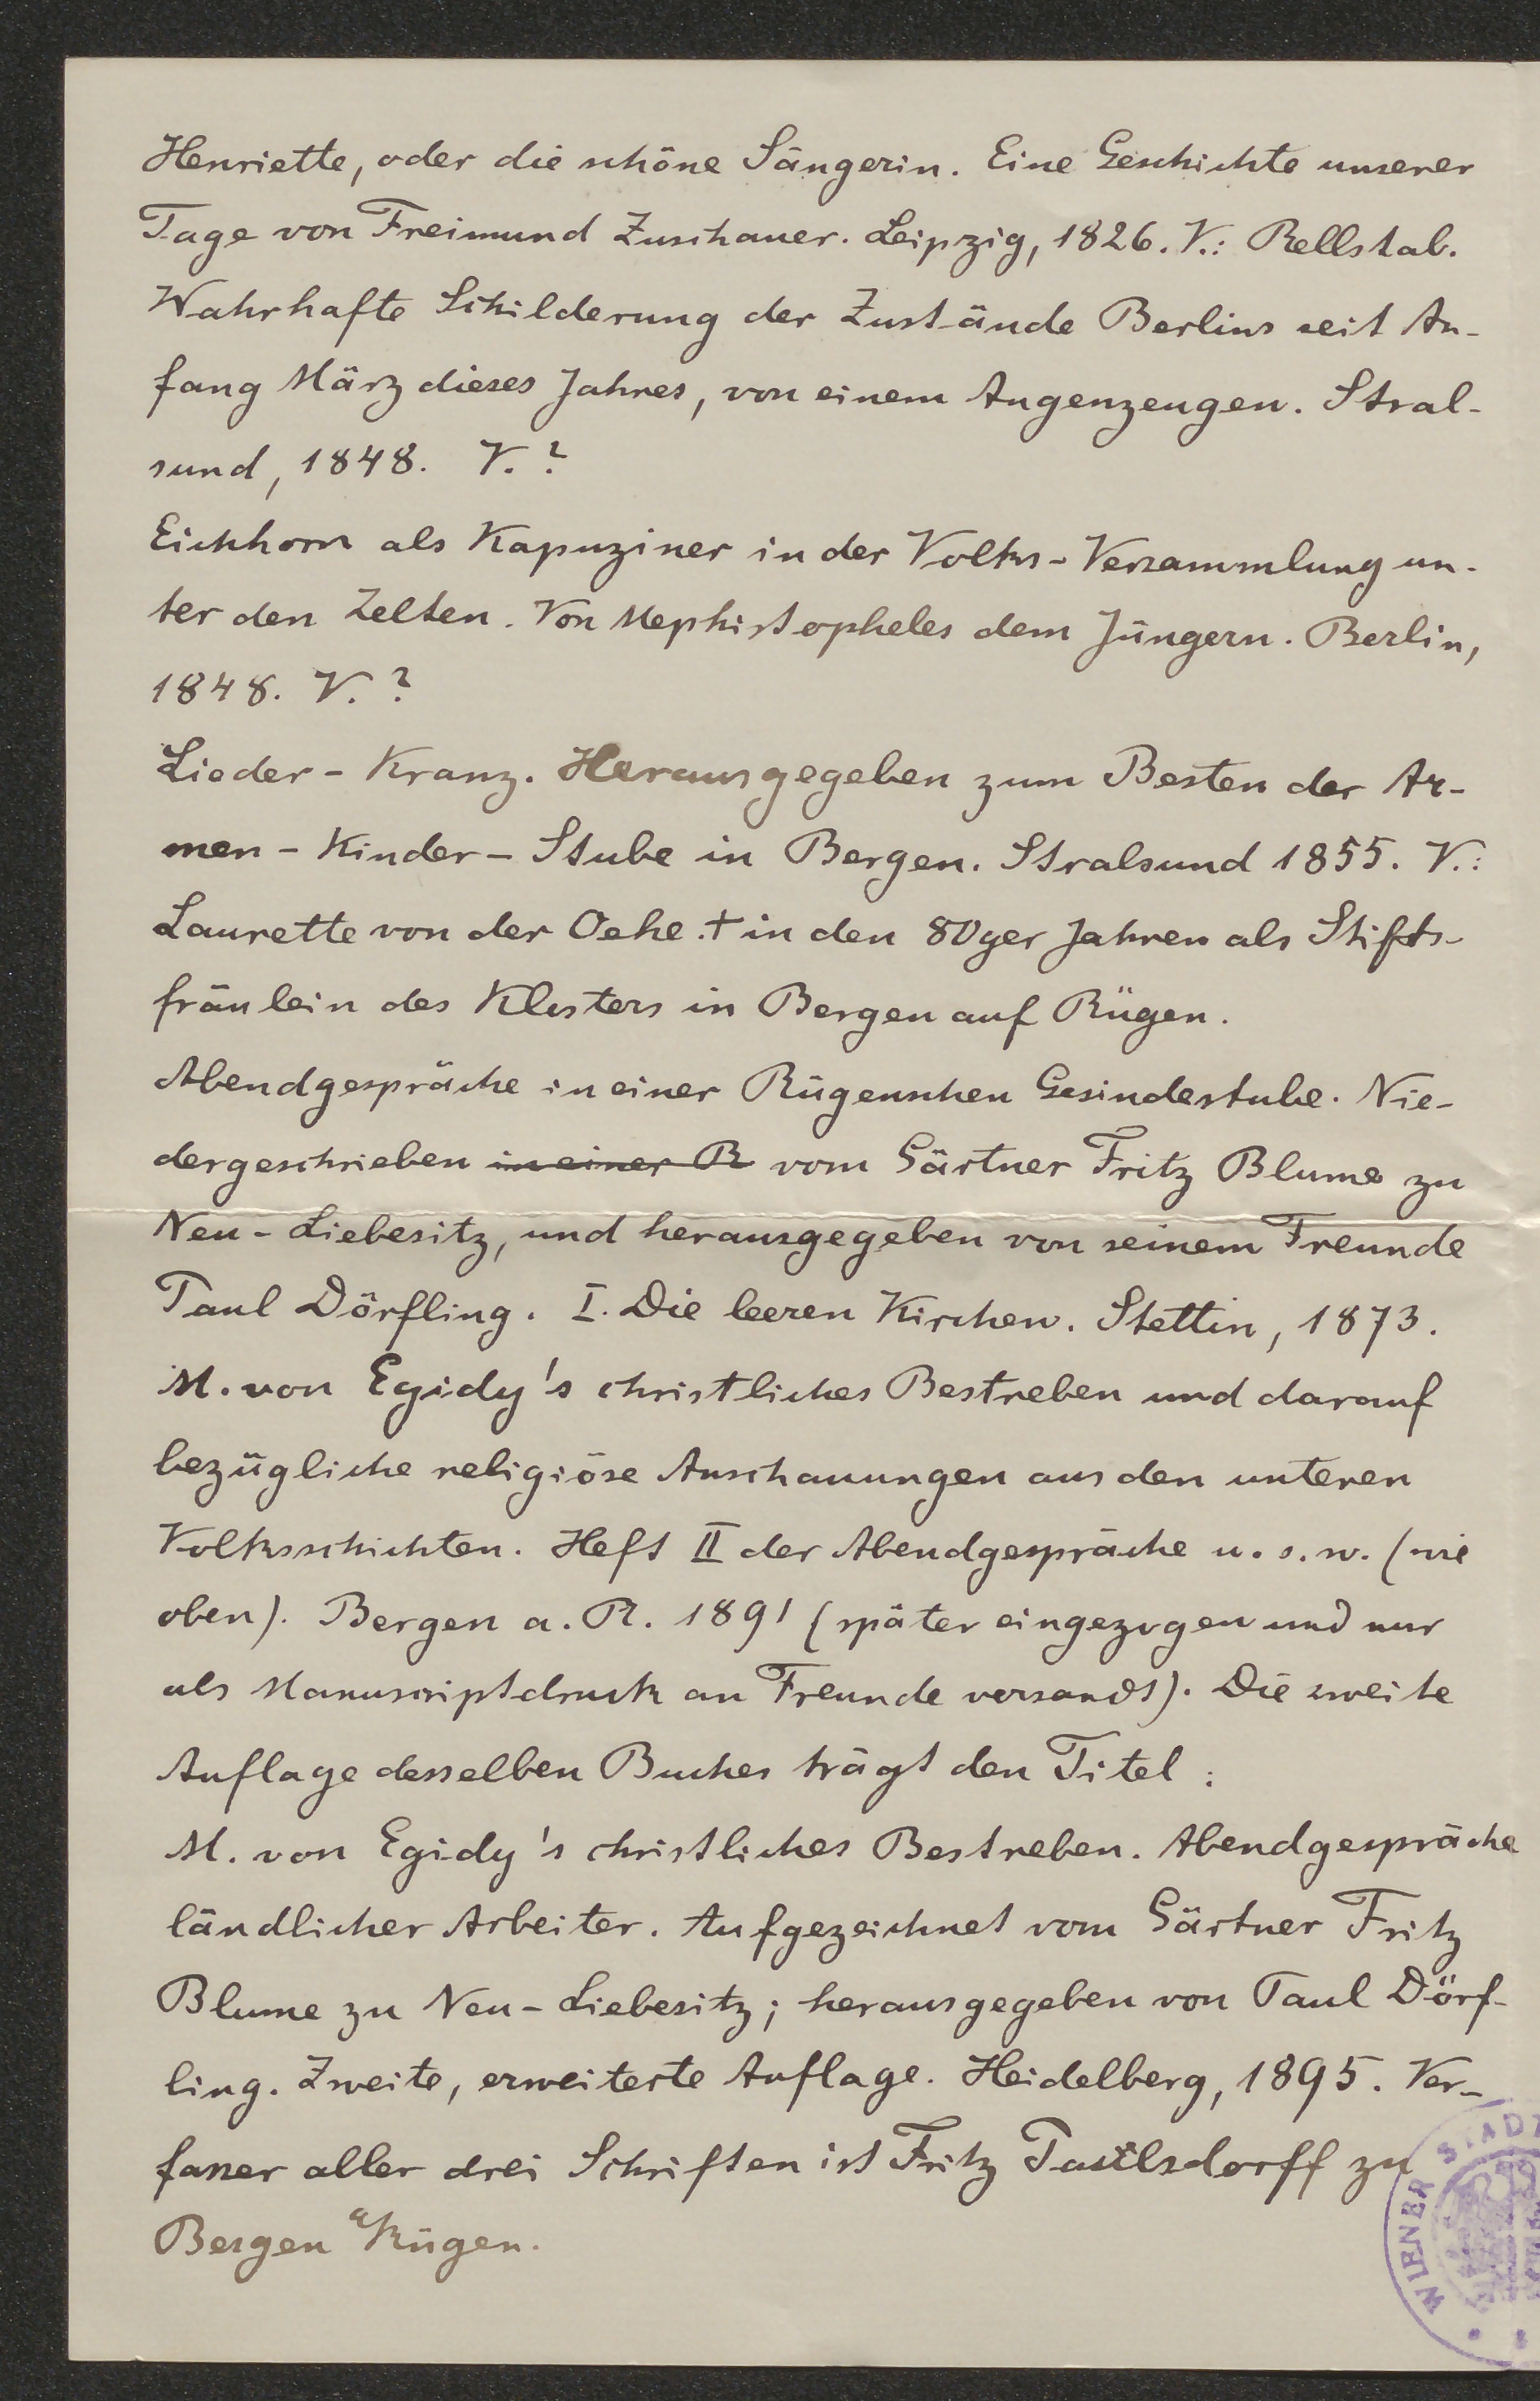 Henriette, oder die schöne Sängerin. Eine Geschichte unserer
Tage von Freimund Zuschauer. Leipzig, 1826. V.: Rellstab.
Wahrhafte Schilderung der Zustände Berlins seit An-
fang März dieses Jahres, von einem Augenzeugen. Stral-
sund, 1848. V.?
Eichhorn als Kapuziner in der Volks-Versammlung un-
ter den Zelten. Von Mephistopheles dem Jüngern. Berlin,
1848. V.?
Lieder-Kranz. Herausgegeben zum Besten der Ar-
men-Kinder-Stube in Bergen. Stralsund 1855. V.:
Laurette von der Oehe. † in den 80ger Jahren als Stifts-
fräulein des Klosters in Bergen auf Rügen.
Abendgespräche in einer Rügenschen Gesindestube. Nie-
dergeschrieben in einer R vom Gärtner Fritz Blume zu
Neu-Liebesitz, und herausgegeben von seinem Freunde
Paul Dörfling. I. Die leeren Kirchen. Stettin, 1873.
M. von Egidy's christliches Bestreben und darauf
bezügliche religiöse Anschauungen aus den unteren
Volksschichten. Heft II der Abendgespräche u. s. w. (wie
oben). Bergen a. R. 1891 (später eingezogen und nur
als Manuscriptdruck an Freunde versandt). Die zweite
Auflage desselben Buches trägt den Titel:
M. von Egidy's christliches Bestreben. Abendgespräche
ländlicher Arbeiter. Aufgezeichnet vom Gärtner Fritz
Blume zu Neu-Liebesitz; herausgegeben von Paul Dörf-
ling. Zweite, erweiterte Auflage. Heidelberg, 1895. Ver-
fasser aller drei Schriften ist Fritz Paulsdorff zu
Bergen a/Rügen.
WIENER STADT